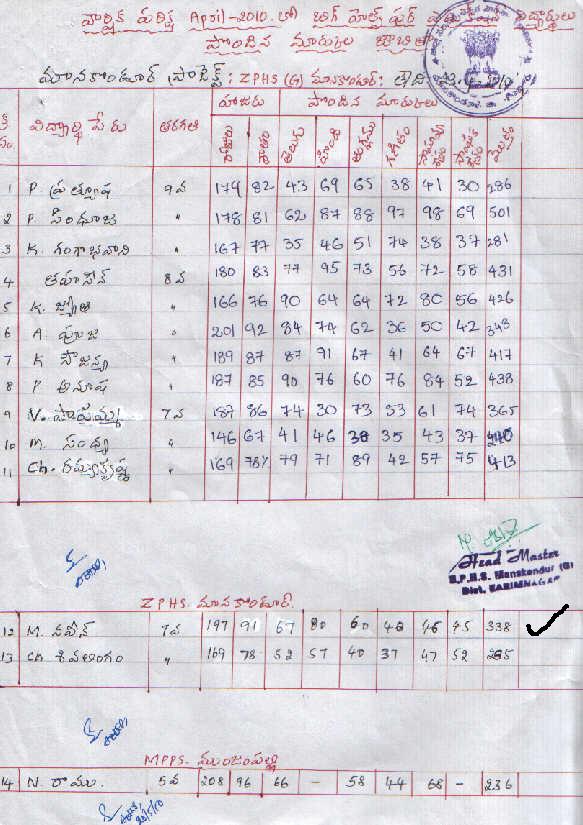 వార్షిక పరీక్ష April-2010. లో బిగ్ హెల్ప్ ఫర్ విద్యార్థులు
పొందిన మార్కుల
మానకొండూర్ ప్రాజెక్ట్: ZPHS (G) మానకొండూర్:
హాజరు పొందిన మార్కులు
విద్యార్థి పేరు తరగతి హాజరు శాతం తెలుగు హిందీ ఇంగ్లీషు గణితం మొత్తం
1 P. ప్రత్యూష 9వ 179 82 43 69 65 38 41 30 286
2 P. సింధూజ " 178 81 62 87 88 97 98 69 501
3 K. గంగాభవాని " 167 77 35 46 51 74 38 37 281
4 తహసీన్ 8వ 180 83 77 95 73 56 72 58 431
5 K. జ్యోతి " 166 76 90 64 64 72 80 56 426
6 A. పూజ " 201 92 84 74 62 36 50 42 348
7 K సౌజన్య " 189 87 87 91 67 41 64 67 417
8 P అనూష " 187 85 90 76 60 76 84 52 438
9 N. 7వ 187 86 74 30 73 53 61 74 365
10 M. సంధ్య " 146 67 41 46 38 35 43 37 240
11 Ch. రమ్యకృష్ణ " 169 78% 79 71 89 42 57 75 413
Head Master
Z.P.H.S. Manakondur (G)
Dist. KARIMNAGAR
ZPHS. మానకొండూర్.
12 M. నవీన్ 7వ 197 91 67 80 60 46 46 45 338
13 Ch. శివలింగం " 169 78 52 57 40 37 47 52 285
MPPS. ముంజంపల్లి
14 N. రాము. 5వ 208 96 66 - 58 44 68 - 236